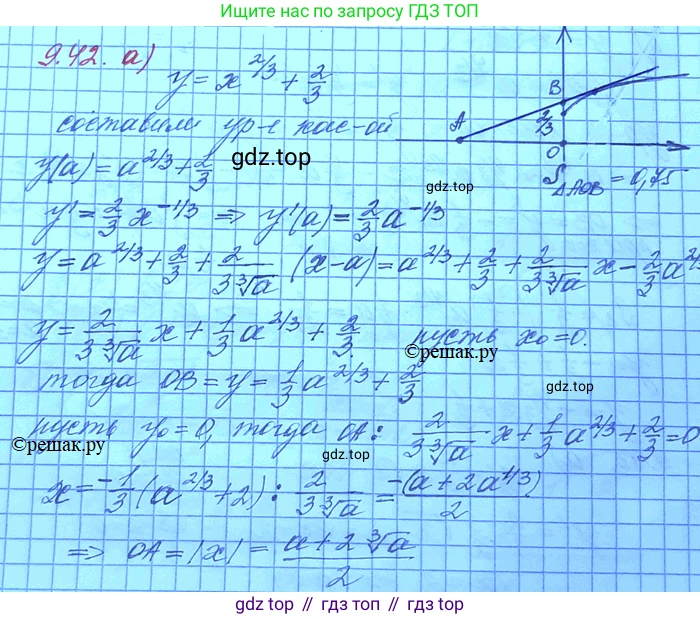 Ищите нас по запросу ГДЗ ТОП
9.42. а)
y = x^{2/3} + 2/3
составим ур-е кас-ой
y(a) = a^{2/3} + 2/3
gdz.top
y' = 2/3 x^{-1/3} ⇒ y'(a) = 2/3 a^{-1/3}
A B 2/3 O
S_{ΔAOB} = 0,75
y = a^{2/3} + 2/3 + 2/(3∛a) (x - a) = a^{2/3} + 2/3 + 2/(3∛a) x - 2/3 a^{2/3}
y = 2/(3∛a) x + 1/3 a^{2/3} + 2/3. пусть x₀ = 0.
©решак.ру
тогда OB = y = 1/3 a^{2/3} + 2/3
gdz.top
пусть y₀ = 0, тогда OA: 2/(3∛a) x + 1/3 a^{2/3} + 2/3 = 0
©решак.ру
gdz.top
x = -1/3 (a^{2/3} + 2) : 2/(3∛a) = -(a + 2a^{1/3})/2
⇒ OA = |x| = (a + 2∛a)/2
gdz top // гдз топ // gdz.top